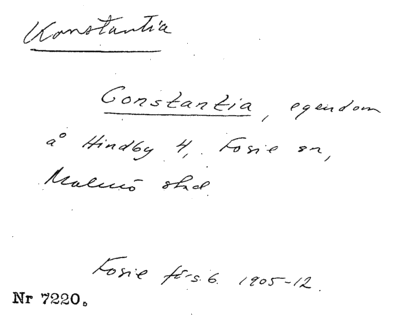 Konstantia
Constantia, egendom
å Hindby 4, Fosie sn,
Malmö stad
Fosie förs. 6. 1905-12.
Nr 7220.